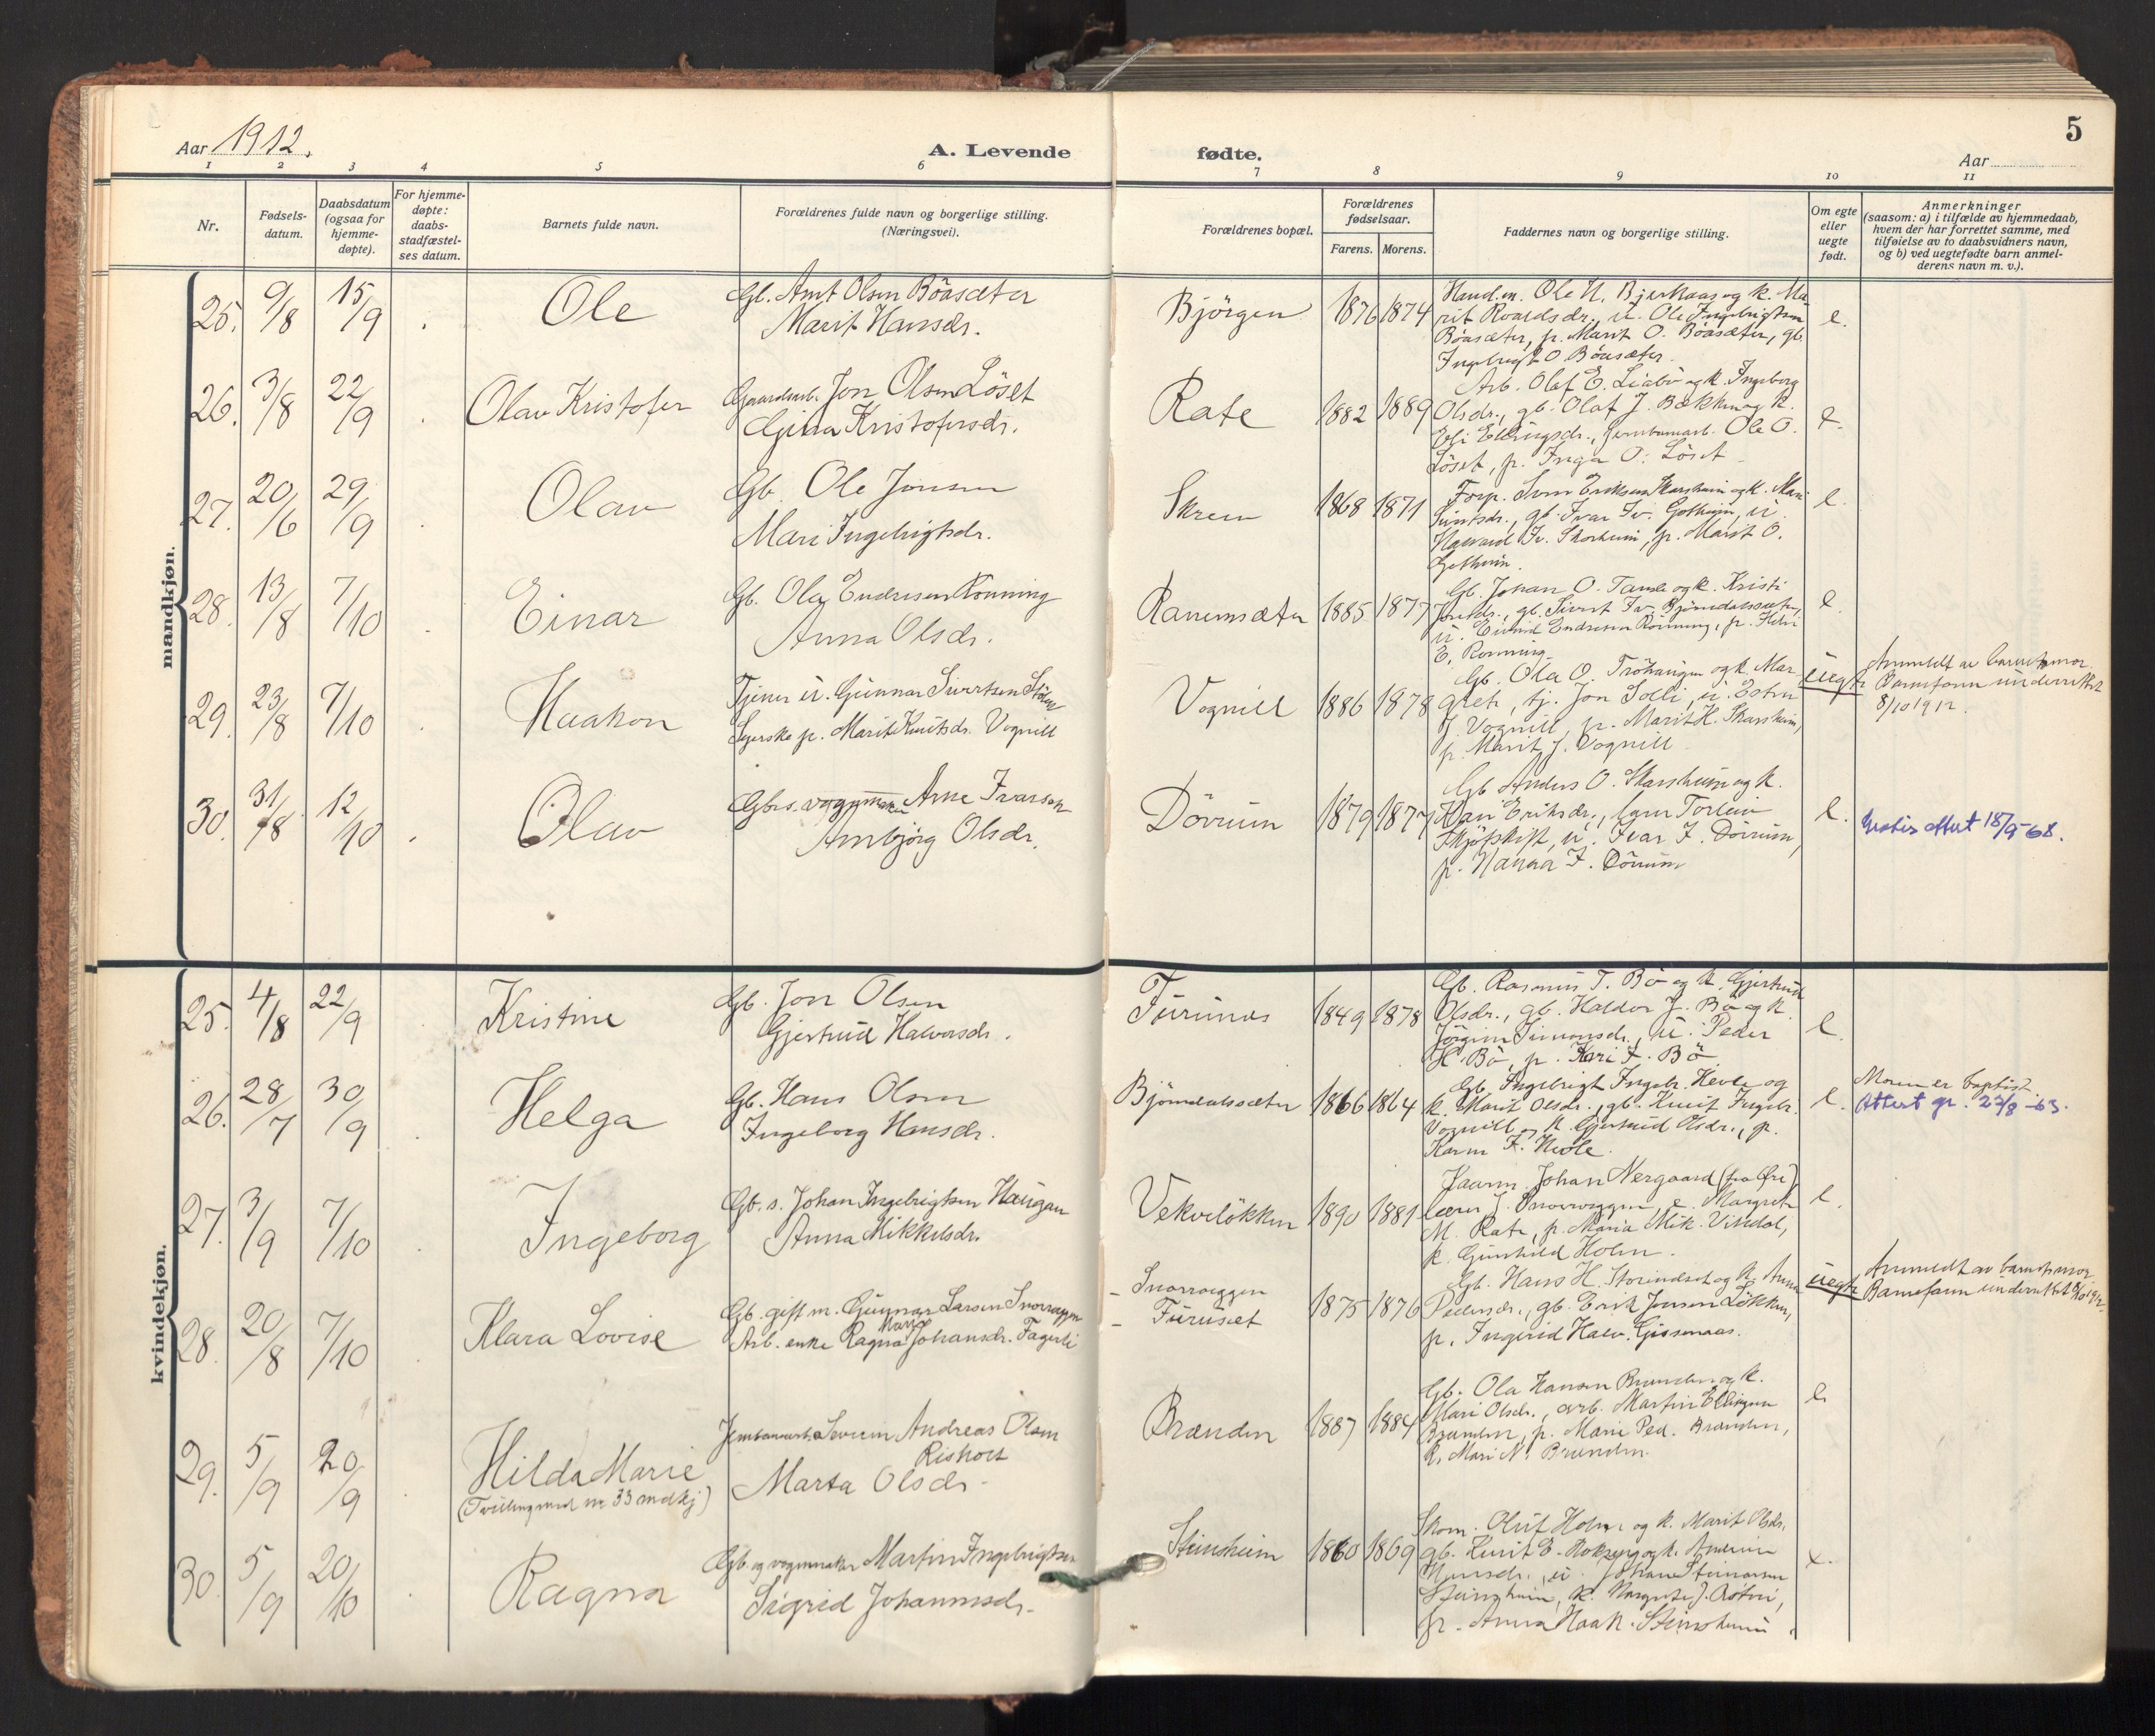 5
Aar 1912.
A. Levende
fødte.
Aar
1 2 3 4 5 6 7 8 9 10 11
Nr.
Fødsels-
datum.
Daabsdatum
(ogsaa for
hjemme-
døpte).
For hjemme-
døpte:
daabs-
stadfæstel-
ses datum.
Barnets fulde navn.
Forældrenes fulde navn og borgerlige stilling.
(Næringsvei).
Forældrenes bopæl.
Forældrenes
fødselsaar.
Farens. Morens.
Faddernes navn og borgerlige stilling.
Om egte
eller
uegte
født.
Anmerkninger
(saasom: a) i tilfælde av hjemmedaab,
hvem der har forrettet samme, med
tilføielse av to daabsvidners navn,
og b) ved uegtefødte barn anmel-
derens navn m. v.).
mandkjøn.
25. 9/8 15/9 Ole
Gb. Arnt Olsen Böasæter
Marit Hansdr.
Björgen 1876 1874
Ole Ingebrigtsen
Böasæter, p. Marit O. Böasæter, gb.
Ingebrigt O Böasæter.
e.
26. 3/8 22/9 Olav Kristofer
Gaardarb. Jon Olsen Löset
Gina Kristofersdr.
Rate 1882 1889
Arb. Olaf E. Liabö og k. Ingeborg
Olsdr., gb. Olaf J. Bækken og k.
Eli Ellingsdr., Jernbanearb. Ole O.
Löset, p. Inga O. Löset
e.
27. 20/6 29/9 Olav
Gb. Ole Jonsen
Mari Ingebrigtsdr.
Skrem 1868 1871
Forp. Sven Eriksen Skarsheim og k. Mari
Sivertsdr., gb. Ivar Iv. Gotheim, u.
Haavard Iv. Skarsheim, p. Marit O.
Gotheim.
e.
28. 13/8 7/10 Einar
Gb. Ola Endresen Rönning
Anna Olsdr.
Ranemsæter 1885 1877
Gb. Johan O. Tamle og k. Kristi
Jonsdr., gb. Sivert Iv. Björndalssæter,
u. Eivind Endresen Rönning, p.
E. Rönning
e.
29. 23/8 7/10 Haakon
Tjener u. Gunnar Sivertsen Stölen
Syerske p. Marit Knutsdr. Vognill
Vognill 1886 1878
Gb. Ola O. Tröhaugen og k. Mar-
greth, tj. Jon Solli, u. Esten
J. Vognill, p. Marit K. Skarsheim,
p. Marit J. Vognill
uegte
Anmeldt av barnets mor.
Barnefaren underrettet
8/10 1912.
30. 31/8 12/10 Olav
Gbrs. vognmaker Arne Ivarsen
Ambjörg Olsdr.
Dörum 1879 1877
Gb Anders O. Skarsheim og k.
Kari Eriksdr., lærer Torleiv
Skjöpskift, u. Ivar I. Dörum,
p. Hanna I. Dörum
e.
Gratis attest 18/9-68.
kvindekjøn.
25. 4/8 22/9 Kristine
Gb. Jon Olsen
Gjertrud Halvorsdr.
Furunes 1849 1878
Gb. Rasmus T. Bö og k. Gjertrud
Olsdr., gb. Haldor J. Bö og k.
Jörgine Simonsdr., u. Peder
H. Bö, p. Kari I. Bö
e.
26. 28/7 30/9 Helga
Gb. Hans Olsen
Ingeborg Hansdr.
Björndalssæter 1866 1864
Gb. Ingebrigt Ingebr. Hevle og
k. Marit Olsdr., gb. Knut Ingebr.
Vognill og k. Gjertrud Olsdr., p.
Karen I. Hevle.
e.
Moren er baptist.
Attest gr. 27/8-63.
27. 3/9 7/10 Ingeborg
Gb. s. Johan Ingebrigtsen Haugen
Anna Mikkelsdr.
Vekvelökken 1890 1881
Faarm. Johan Nergaard (fra Öre)
lærer J. Snoeveggen, e. Margrete
M. Rate, p. Maria Mik. Vikedal,
p. Gunhild Holm.
e.
28. 20/8 7/10 Klara Lovise
Gb. gift m. Gunnar Larsen Snoeveggen
Arb. enke Ragna Marie Johansdr. Fagerli
- Snoeveggen
- Furuset
1875 1876
Gb. Hans H. Storindset og k. Anne
Pedersdr., gb. Erik Jonsen Lökken,
p. Ingerid Halv. Gissenaas.
uegte
Anmeldt av barnets mor
Barnefaren underrettet 8/10 1912.
29. 5/9 20/9 Hilda Marie
(Tvilling med nr 33 mdkj)
Jernbanearb. Severin Andreas Olsen
Riskoet
Marta Olsdr.
Brænden 1887 1884
Gb. Ola Hansen Brænden og k.
Mari Olsdr., arb. Martin Ellingsen
Brænden, p. Marie Ped. Brænden,
k. Mari N. Brænden.
e.
30. 5/9 20/10 Ragna
Gb. og vognmaker Martin Ingebrigtsen
Sigrid Johannesdr.
Steinsheim 1860 1869
Skom. Oluf Holm og k. Marit Olsdr.
gb. Knut E. og k.
Hansdr., u. Johan
Steinsheim, k. Margrete J.
p. Anna Haak. Steinsheim